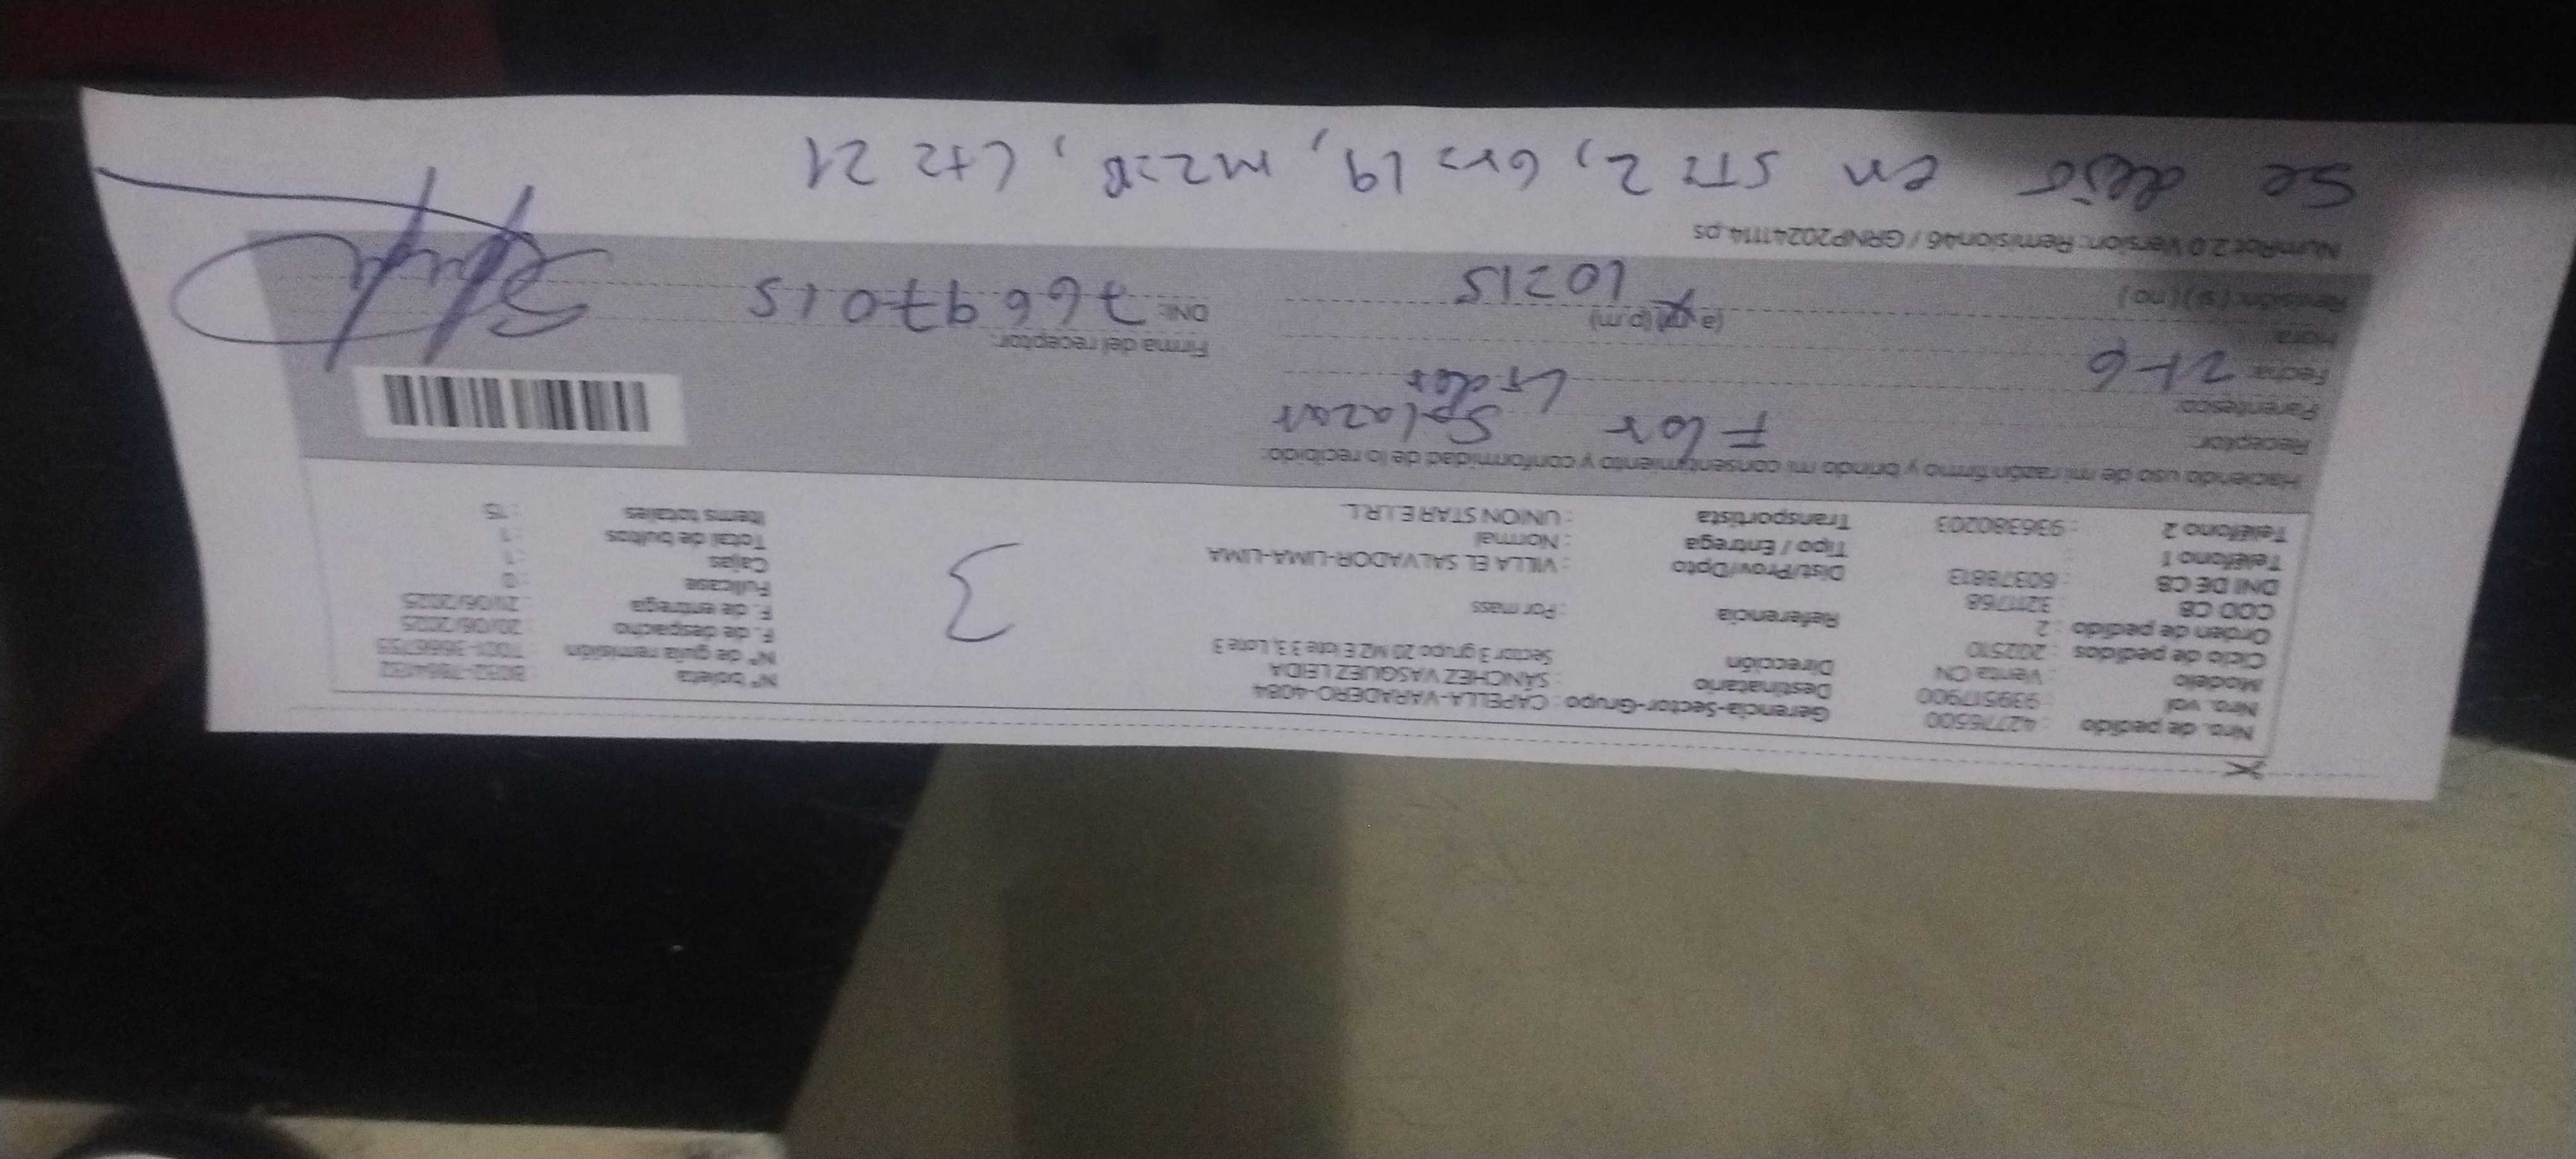 Nro. de pedido : 42776500
Nro. val : 939517900
Modelo : Venta CN
Ciclo de pedidos : 202510
Orden de pedido : 2
COD CB : 3211768
DNI DE CB : 60378813
Teléfono 1 :
Teléfono 2 : 936380203
Gerencia-Sector-Grupo : CAPELLA-VARADERO-4084
Destinatario : SANCHEZ VASQUEZ LEIDA
Dirección : Sector 3 grupo 20 MZ E lote 3 3, Lote 3
Referencia : Por mass
Dist/Prov/Dpto : VILLA EL SALVADOR-LIMA-LIMA
Tipo / Entrega : Normal
Transportista : UNION STAR E.I.R.L.
3
N° boleta
N° de guía remisión
F. de despacho : 20/06/2025
F. de entrega : 21/06/2025
Fullcase : 0
Cajas : 1
Total de bultos : 1
Items totales : 15
Haciendo uso de mi razón firmo y brindo mi consentimiento y conformidad de lo recibido:
Receptor: Flor Salazar
Parentesco: Líder
Fecha: 21-6
Hora: (a.m) (p.m)
Revisión: (si) (no)
10215
Firma del receptor:
DNI: 76697015
NumRot 2.0 Version: Remision46 / GRNP20241114.ps
Se dejó en